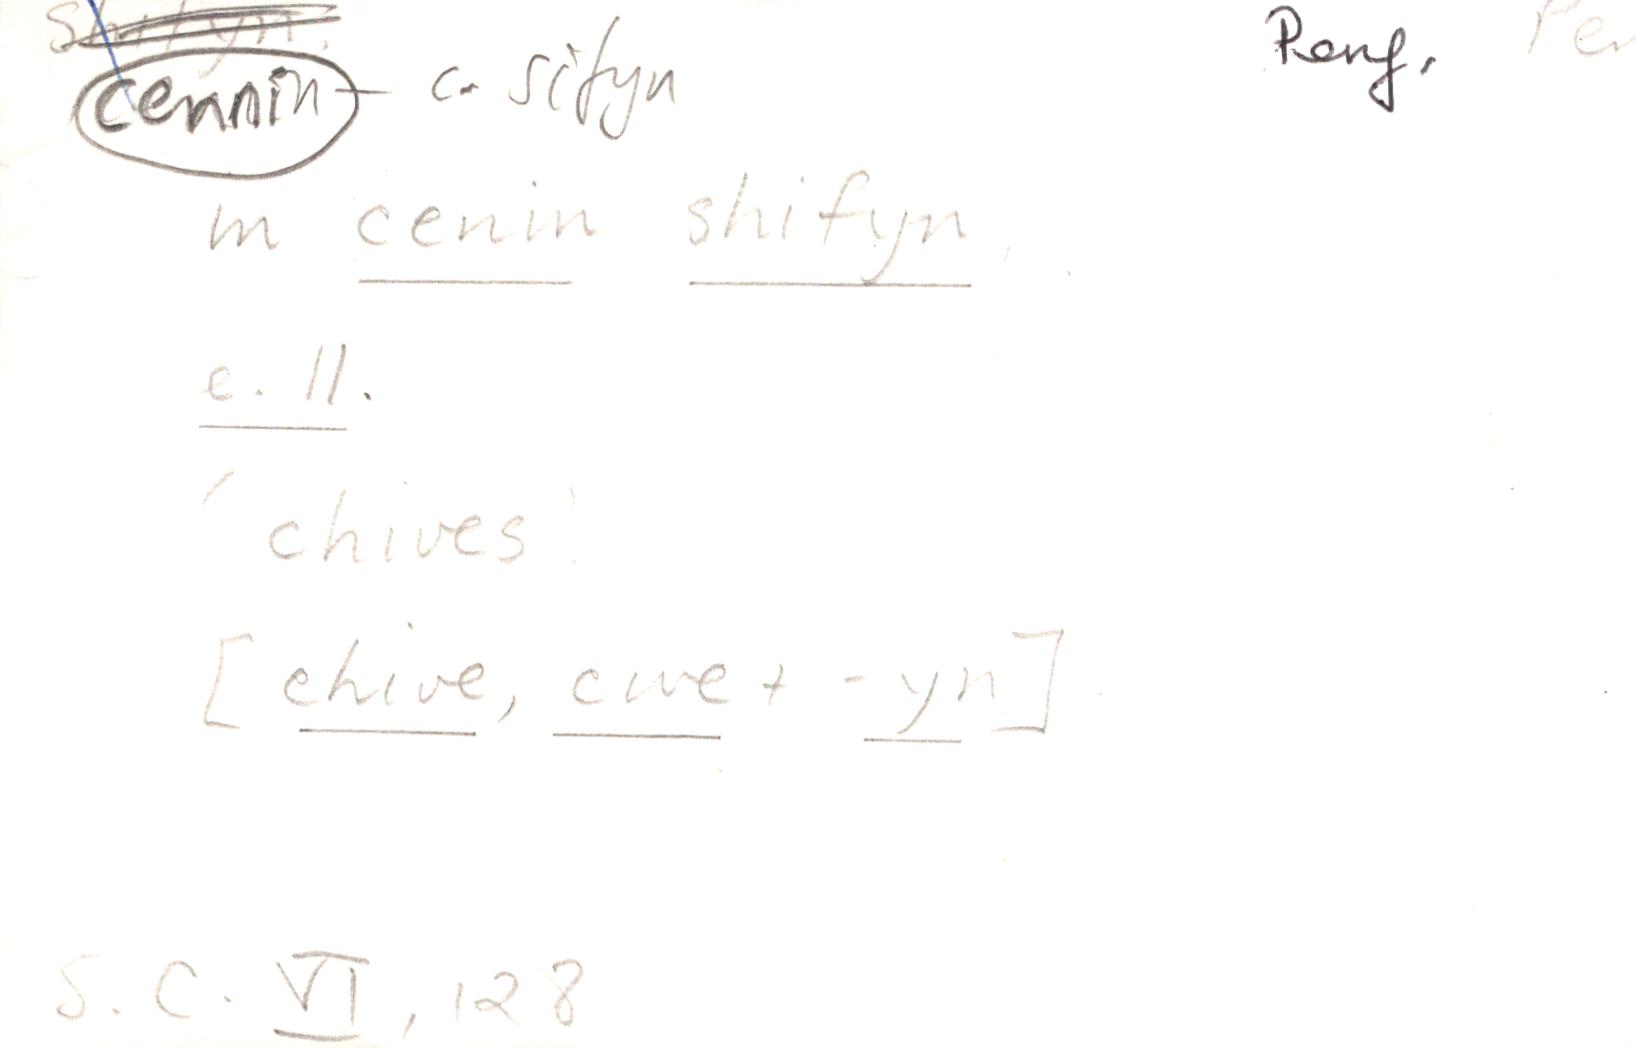 shifyn. Penf. Pen
cennin - c. sifyn
m cenin shifyn,
e. ll.
'chives'
[chive, cive + -yn]
S. C. VI, 128